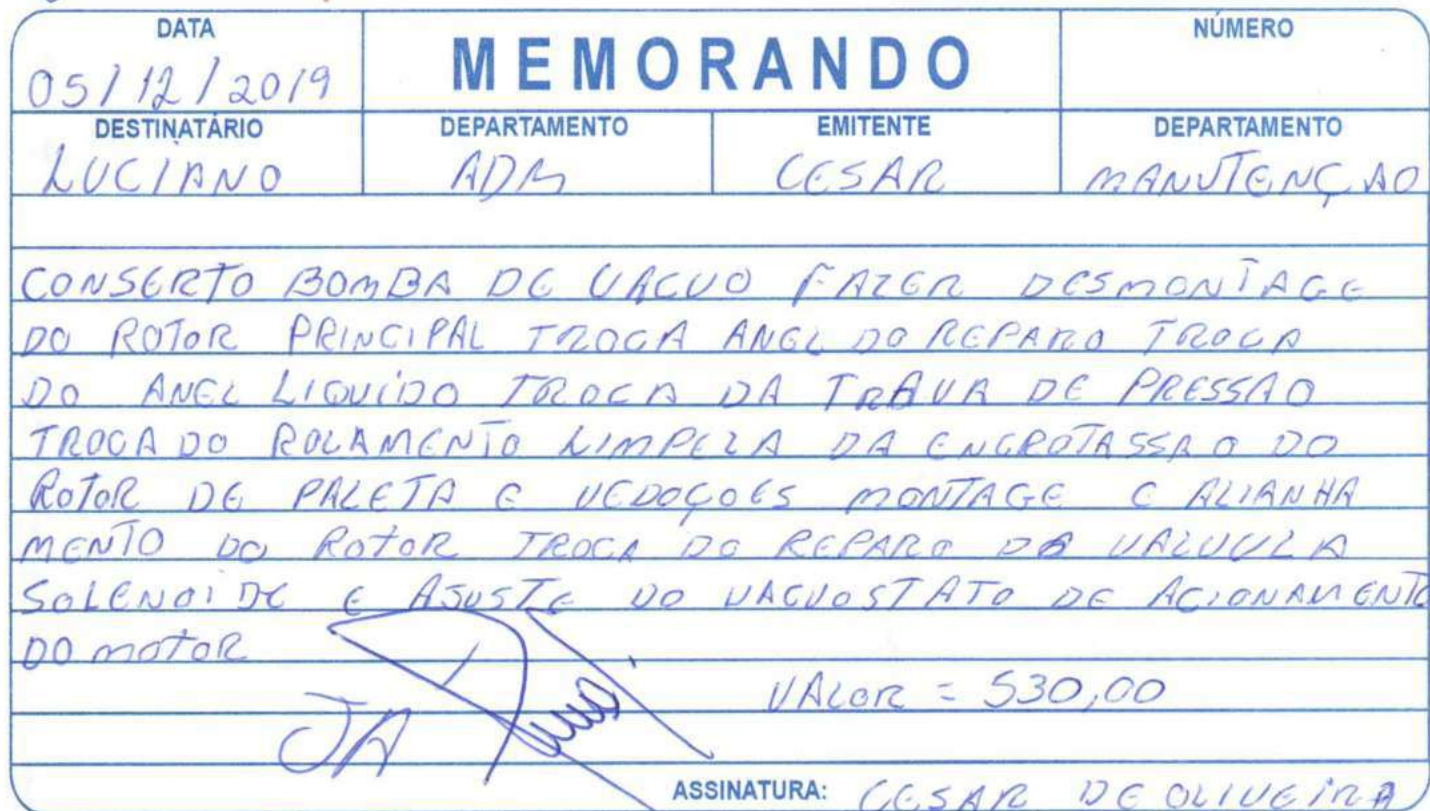 DATA
MEMORANDO
NÚMERO
05/12/2019
DESTINATÁRIO DEPARTAMENTO EMITENTE DEPARTAMENTO
LUCIANO ADM CESAR MANUTENÇAO
CONSERTO BOMBA DE VACUO FAZER DESMONTAGE
DO ROTOR PRINCIPAL TROCA ANEL DO REPARO TROCA
DO ANEL LIQUIDO TROCA DA TRAVA DE PRESSAO
TROCA DO ROLAMENTO LIMPEZA DA ENCROTASSAO DO
ROTOR DE PALETA E VEDOÇOES MONTAGE E ALIANHA
MENTO DO ROTOR TROCA DO REPARO DA VALVULA
SOLENOIDE E AJUSTE DO VACUOSTATO DE ACIONAMENTO
DO MOTOR
VALOR = 530,00
JA
ASSINATURA: CESAR DE OLIVEIRA